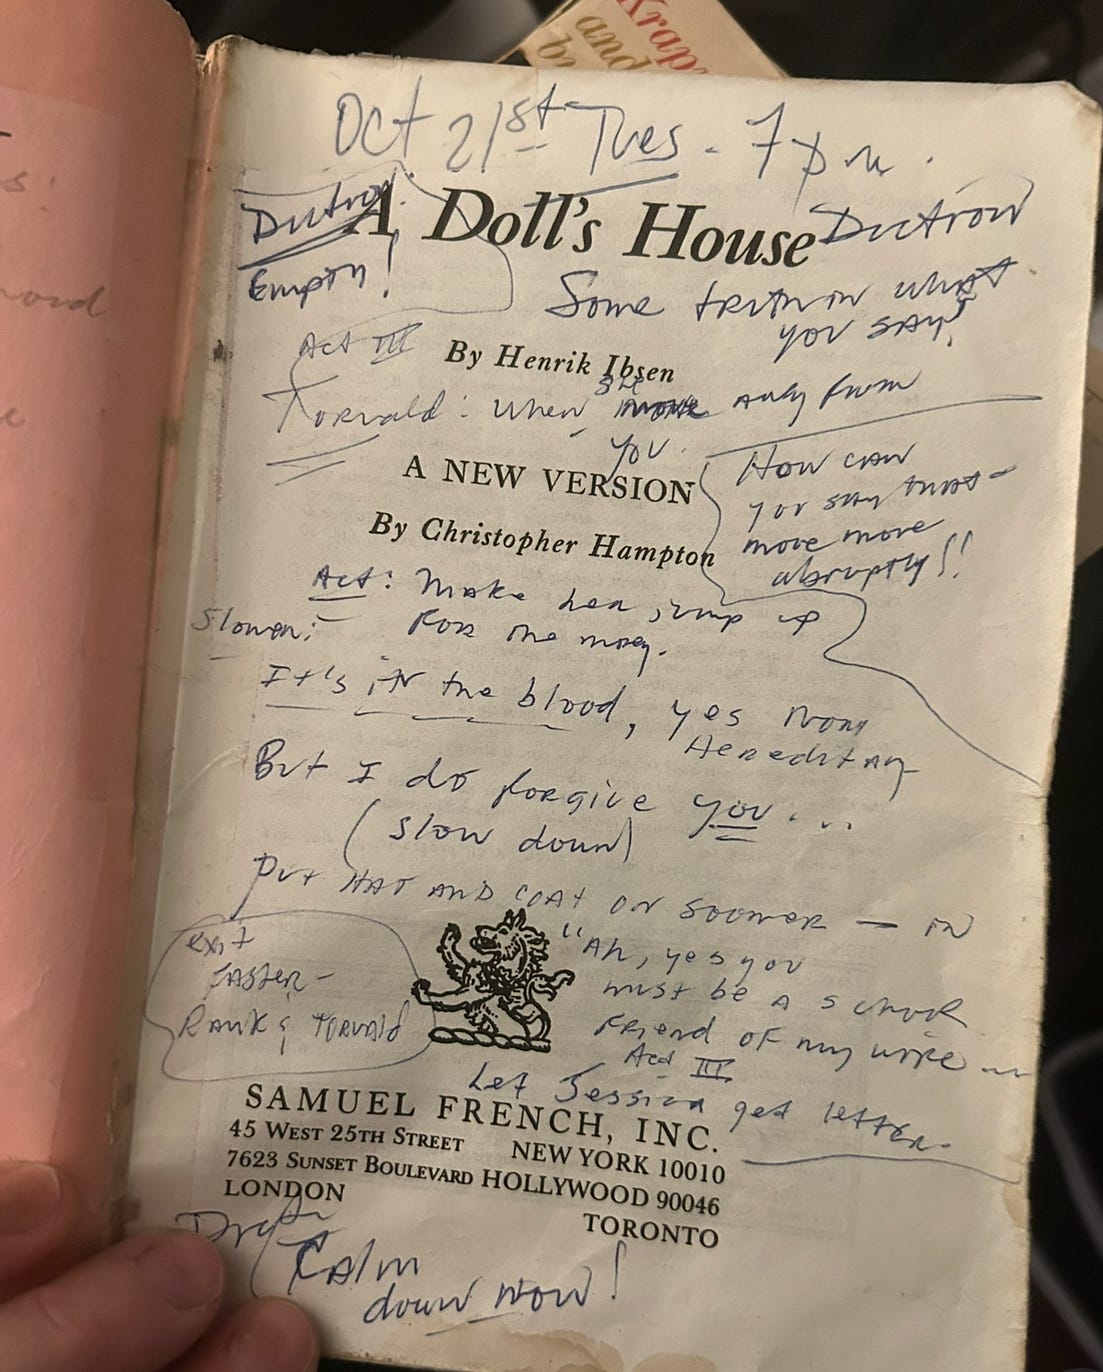 Krap
and
b
Oct 21st Tues. 7 pm.
A Doll's House
Diction
Diction
Empty!
Some truth in what
you say?
Act III
By Henrik Ibsen
Torvald: when she move away from
you.
A NEW VERSION
By Christopher Hampton
How can
you say that -
move more
abruptly!!
Act: Make her jump up
for the money.
Slower:
It's in the blood, yes Nora
Hereditary
But I do forgive you...
(slow down)
Put HAT AND COAT ON sooner — in
"Ah, yes you
must be a school
friend of my wife ...
exit
faster -
Rank & Torvald
Act III
Let Jessica get letter.
SAMUEL FRENCH, INC.
45 WEST 25TH STREET NEW YORK 10010
7623 SUNSET BOULEVARD HOLLYWOOD 90046
LONDON TORONTO
Calm
down now!